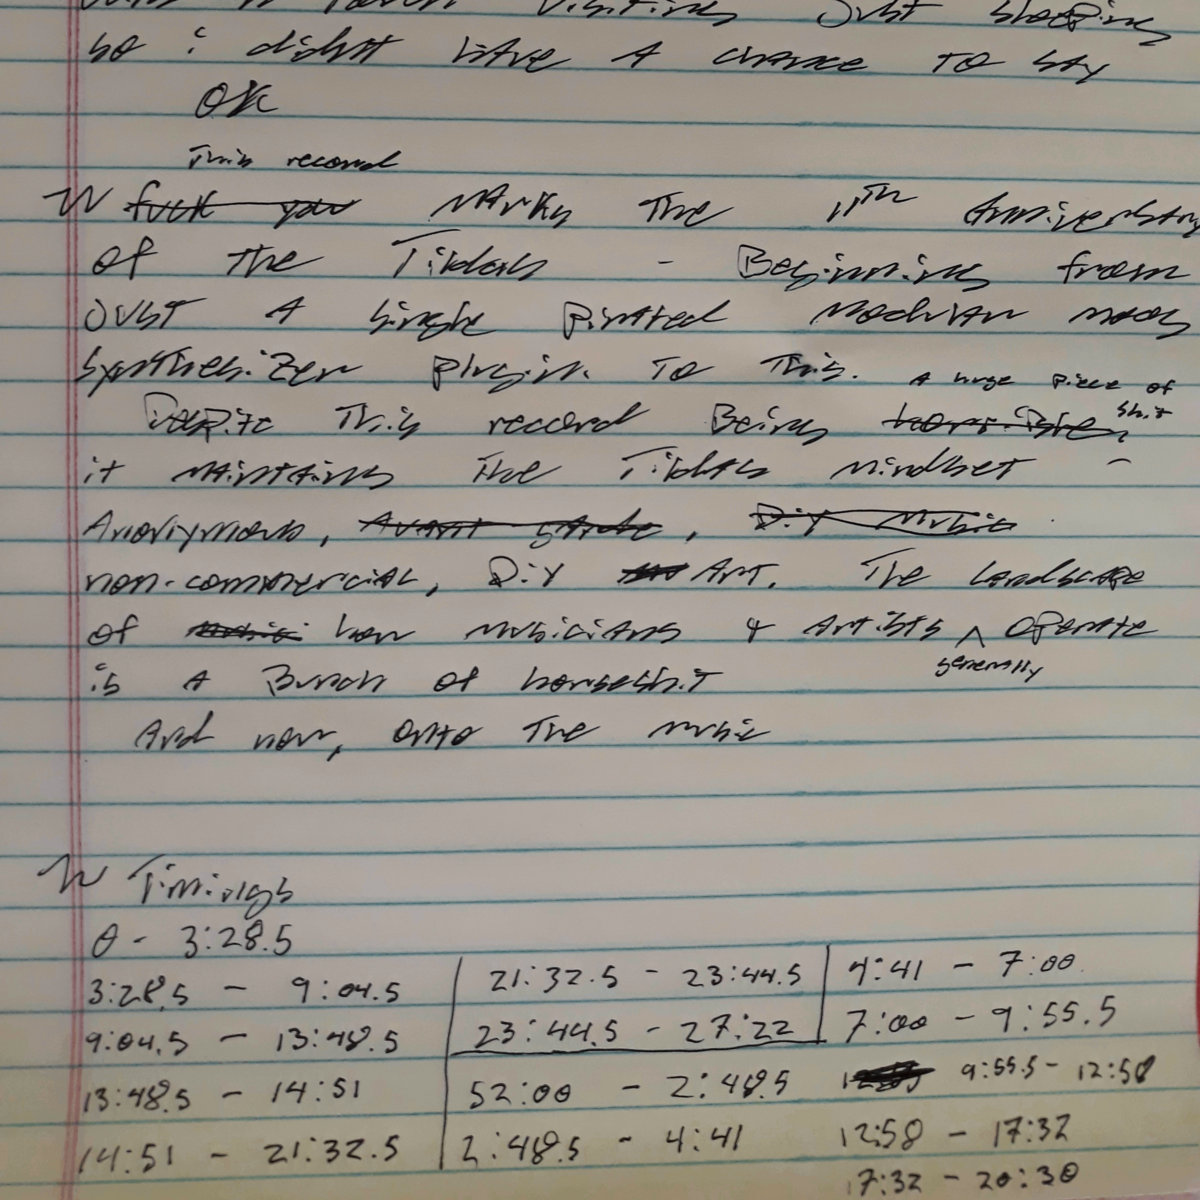 visiting just sleeping
so i didnt have A chance to say
OK
This record
fuck you marks The 11th Anniversary
of the Tildas - Beginning from
Just A single pirated modular moog
synthesizer plugin. To This. A huge piece of
Despite This record Being horrible, shit
it maintains The Tildas mindset -
Anonymous, Avant garde, DiY music
non-commercial, DiY Art. The landscape
of music how musicians & Artists ^ operate
generally
is A Bunch of horseshit
And now, onto The music
Timings
0 - 3:28.5
3:28.5 - 9:04.5
9:04.5 - 13:48.5
13:48.5 - 14:51
14:51 - 21:32.5
21:32.5 - 23:44.5
23:44.5 - 27:22
52:00 - 2:48.5
2:48.5 - 4:41
4:41 - 7:00
7:00 - 9:55.5
9:55.5 - 12:58
12:58 - 17:32
17:32 - 20:30